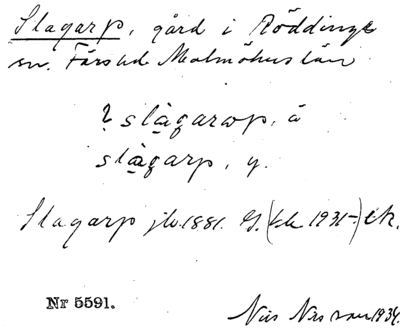 Slagarp, gård i Röddinge
sn. Färs hd Malmöhus län
slàgarωp, ä
slàgarp, y.
Slagarp jb. 1881. G. (kb 1931-) ek.
Nr 5591.
Nils Nilsson 1934.